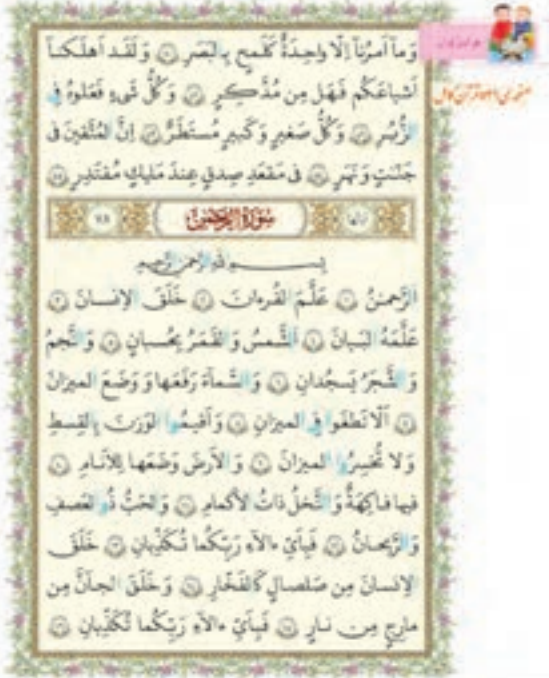 وَمآ اَمرُنآ اِلّا واحِدَةٌ كَلَمحٍ بِالبَصَرِ ﴿۵۰﴾ وَ لَقَد اَهلَكنآ
اَشياعَكُم فَهَل مِن مُدَّكِرٍ ﴿۵۱﴾ وَ كُلُّ شَىءٍ فَعَلوهُ فِى
الزُّبُرِ ﴿۵۲﴾ وَ كُلُّ صَغيرٍ وَ كَبيرٍ مُستَطَرٌ ﴿۵۳﴾ اِنَّ المُتَّقينَ فى
جَنّٰتٍ وَ نَهَرٍ ﴿۵۴﴾ فى مَقعَدِ صِدقٍ عِندَ مَليكٍ مُقتَدِرٍ ﴿۵۵﴾
سُورَةُ الرَّحمٰن ۷۸
بِسمِ اللهِ الرَّحمٰنِ الرَّحيمِ
اَلرَّحمٰنُ ﴿۱﴾ عَلَّمَ القُرءانَ ﴿۲﴾ خَلَقَ الاِنسانَ ﴿۳﴾
عَلَّمَهُ البَيانَ ﴿۴﴾ اَلشَّمسُ وَ القَمَرُ بِحُسبانٍ ﴿۵﴾ وَ النَّجمُ
وَ الشَّجَرُ يَسجُدانِ ﴿۶﴾ وَ السَّمآءَ رَفَعَها وَ وَضَعَ الميزانَ
﴿۷﴾ اَلّا تَطغَوا فِى الميزانِ ﴿۸﴾ وَ اَقيمُوا الوَزنَ بِالقِسطِ
وَ لا تُخسِرُوا الميزانَ ﴿۹﴾ وَ الاَرضَ وَضَعَها لِلاَنامِ ﴿۱۰﴾
فيها فاكِهَةٌ وَ النَّخلُ ذاتُ الاَكمامِ ﴿۱۱﴾ وَ الحَبُّ ذُو العَصفِ
وَ الرَّيحانُ ﴿۱۲﴾ فَبِاَىِّ ءالآءِ رَبِّكُما تُكَذِّبانِ ﴿۱۳﴾ خَلَقَ
الاِنسانَ مِن صَلصالٍ كَالفَخّارِ ﴿۱۴﴾ وَ خَلَقَ الجآنَّ مِن
مارِجٍ مِن نارٍ ﴿۱۵﴾ فَبِاَىِّ ءالآءِ رَبِّكُما تُكَذِّبانِ ﴿۱۶﴾